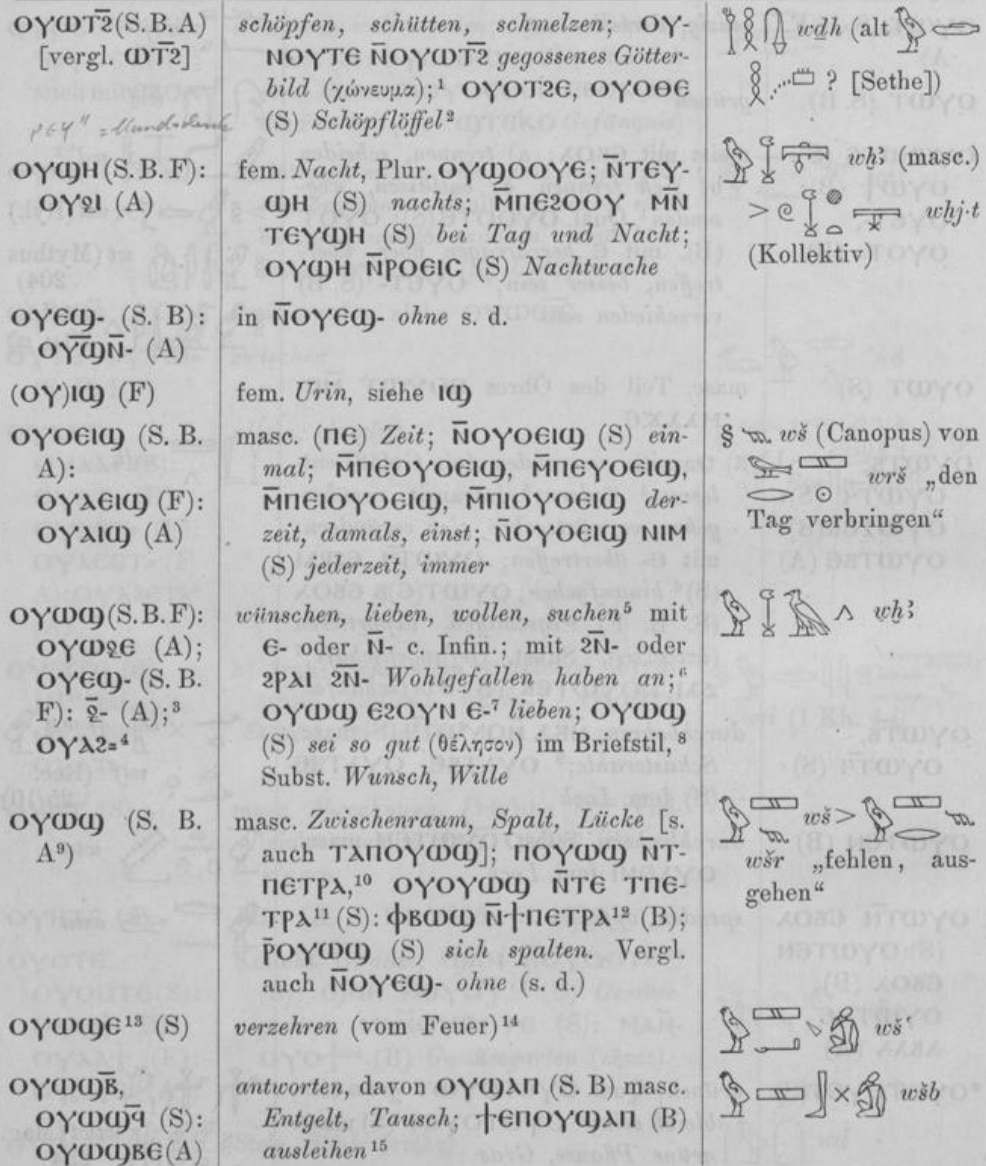 ⲟⲩⲱⲧϩ̅ (S. B. A)
[vergl. ⲱⲧϩ̅]
schöpfen, schütten, schmelzen; ⲟⲩ-
ⲛⲟⲩⲧⲉ ⲛ̅ⲟⲩⲱⲧϩ̅ gegossenes Götter-
bild (χώνευμα);¹ ⲟⲩⲟⲧϩⲉ, ⲟⲩⲟⲑⲉ
(S) Schöpflöffel²
wdḥ (alt
? [Sethe])
ⲟⲩϣⲏ (S. B. F):
ⲟⲩⳉⲓ (A)
fem. Nacht, Plur. ⲟⲩϣⲟⲟⲩⲉ; ⲛ̅ⲧⲉⲩ-
ϣⲏ (S) nachts; ⲙ̅ⲡⲉϩⲟⲟⲩ ⲙⲛ̅
ⲧⲉⲩϣⲏ (S) bei Tag und Nacht;
ⲟⲩϣⲏ ⲛ̅ⲣⲟⲉⲓⲥ (S) Nachtwache
wḫꜣ (masc.)
> wḫj·t
(Kollektiv)
ⲟⲩⲉϣ- (S. B):
ⲟⲩϣ̅ⲛ̅- (A)
in ⲛ̅ⲟⲩⲉϣ- ohne s. d.
(ⲟⲩ)ⲓϣ (F)
fem. Urin, siehe ⲓϣ
ⲟⲩⲟⲉⲓϣ (S. B.
A):
ⲟⲩⲁⲉⲓϣ (F):
ⲟⲩⲁⲓϣ (A)
masc. (ⲡⲉ) Zeit; ⲛ̅ⲟⲩⲟⲉⲓϣ (S) ein-
mal; ⲙ̅ⲡⲉⲟⲩⲟⲉⲓϣ, ⲙ̅ⲡⲉⲩⲟⲉⲓϣ,
ⲙ̅ⲡⲉⲓⲟⲩⲟⲉⲓϣ, ⲙ̅ⲡⲓⲟⲩⲟⲉⲓϣ der-
zeit, damals, einst; ⲛ̅ⲟⲩⲟⲉⲓϣ ⲛⲓⲙ
(S) jederzeit, immer
§ wš (Canopus) von
wrš „den
Tag verbringen“
ⲟⲩⲱϣ (S. B. F):
ⲟⲩⲱⳉⲉ (A);
ⲟⲩⲉϣ- (S. B.
F): ⳉ̅- (A);³
ⲟⲩⲁϩ=⁴
wünschen, lieben, wollen, suchen⁵ mit
ⲉ- oder ⲛ̅- c. Infin.; mit ϩⲛ̅- oder
ϩⲣⲁⲓ ϩⲛ̅- Wohlgefallen haben an;⁶
ⲟⲩⲱϣ ⲉϩⲟⲩⲛ ⲉ-⁷ lieben; ⲟⲩⲱϣ
(S) sei so gut (θέλησον) im Briefstil,⁸
Subst. Wunsch, Wille
wḫꜣ
ⲟⲩⲱϣ (S. B.
A⁹)
masc. Zwischenraum, Spalt, Lücke [s.
auch ⲧⲁⲡⲟⲩⲱϣ]; ⲡⲟⲩⲱϣ ⲛ̅ⲧ-
ⲡⲉⲧⲣⲁ,¹⁰ ⲟⲩⲟⲩⲱϣ ⲛ̅ⲧⲉ ⲧⲡⲉ-
ⲧⲣⲁ¹¹ (S): ⲫⲃⲱϣ ⲛ̅ϯⲡⲉⲧⲣⲁ¹² (B);
ⲣ̅ⲟⲩⲱϣ (S) sich spalten. Vergl.
auch ⲛ̅ⲟⲩⲉϣ- ohne (s. d.)
wš >
wšr „fehlen, aus-
gehen“
ⲟⲩⲱϣⲉ¹³ (S)
verzehren (vom Feuer)¹⁴
wšꜥ
ⲟⲩⲱϣⲃ̅,
ⲟⲩⲱϣϥ̅ (S):
ⲟⲩⲱϣⲃⲉ (A)
antworten, davon ⲟⲩϣⲁⲡ (S. B) masc.
Entgelt, Tausch; ϯⲉⲡⲟⲩϣⲁⲡ (B)
ausleihen¹⁵
wšb